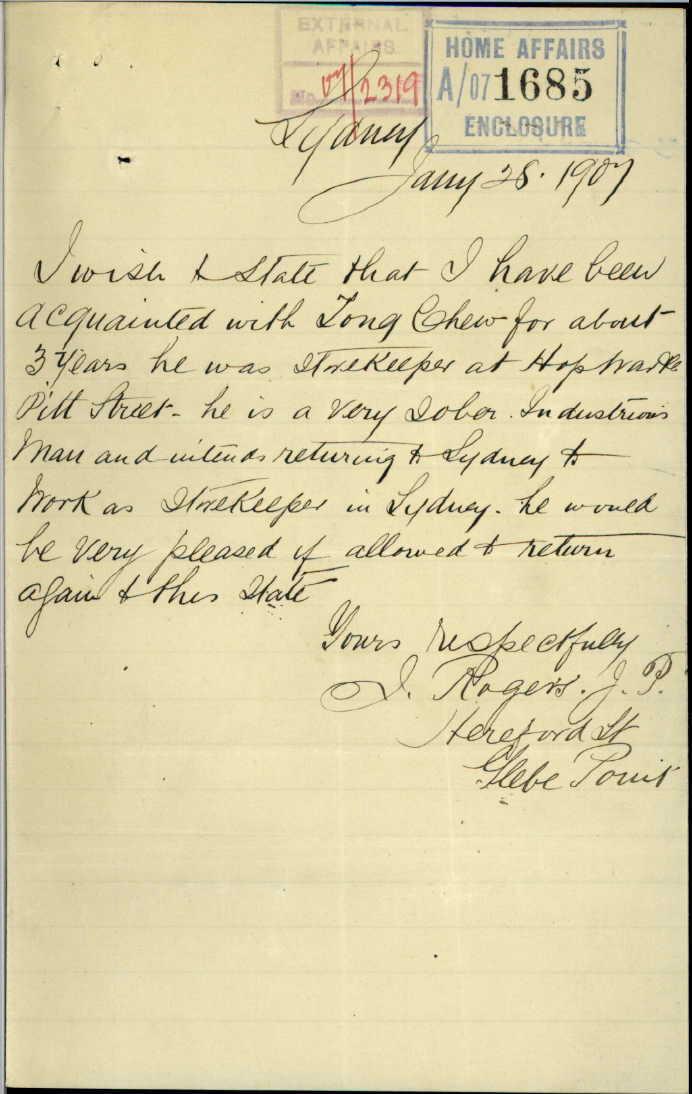 EXTERNAL
AFFAIRS
No. 07/2319
HOME AFFAIRS
A/07 1685
ENCLOSURE
Sydney
Jany 28. 1907
I wish to state that I have been
acquainted with Tong Chew for about
3 years he was storekeeper at Hop
Pitt Street - he is a very sober. Industrious
Man and intends returning to Sydney to
Work as Storekeeper in Sydney. he would
be very pleased if allowed to return
again to this State
Yours respectfully
Rogers. J. P.
Hereford St
Glebe Point